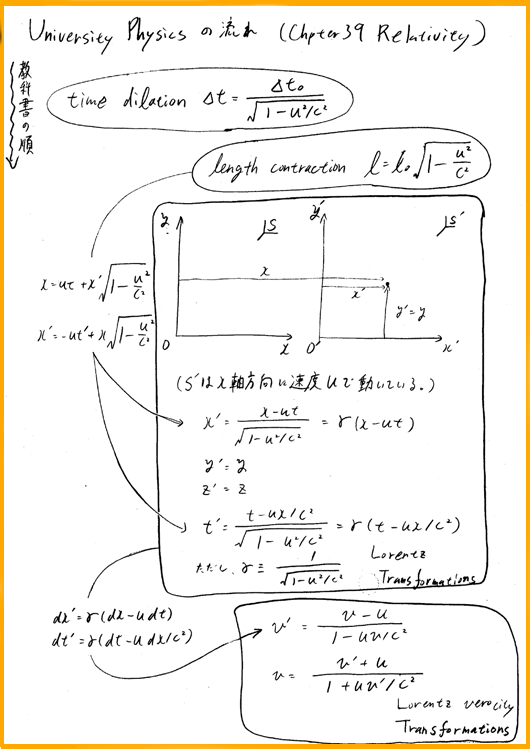 University Physics の流れ (Chpter 39 Relativity)
教科書の順
time dilation Δt = Δt₀ / √(1-u²/c²)
length contraction l = l₀ √(1-u²/c²)
y
S
y'
S'
x
x'
y' = y
O
x
O'
x'
x = ut + x' √(1-u²/c²)
x' = -ut' + x √(1-u²/c²)
(S'はx軸方向に速度uで動いている。)
x' = (x-ut) / √(1-u²/c²) = γ(x-ut)
y' = y
z' = z
t' = (t-ux/c²) / √(1-u²/c²) = γ(t-ux/c²)
ただし、γ ≡ 1 / √(1-u²/c²)
Lorentz
Transformations
dx' = γ(dx-udt)
dt' = γ(dt-udx/c²)
v' = (v-u) / (1-uv/c²)
v = (v'+u) / (1+uv'/c²)
Lorentz verocity
Transformations